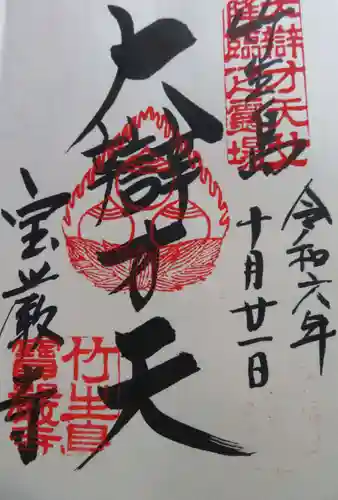 令和六年
十月廿一日
竹生島
大辯才天
宝厳寺
竹生島
寶嚴寺